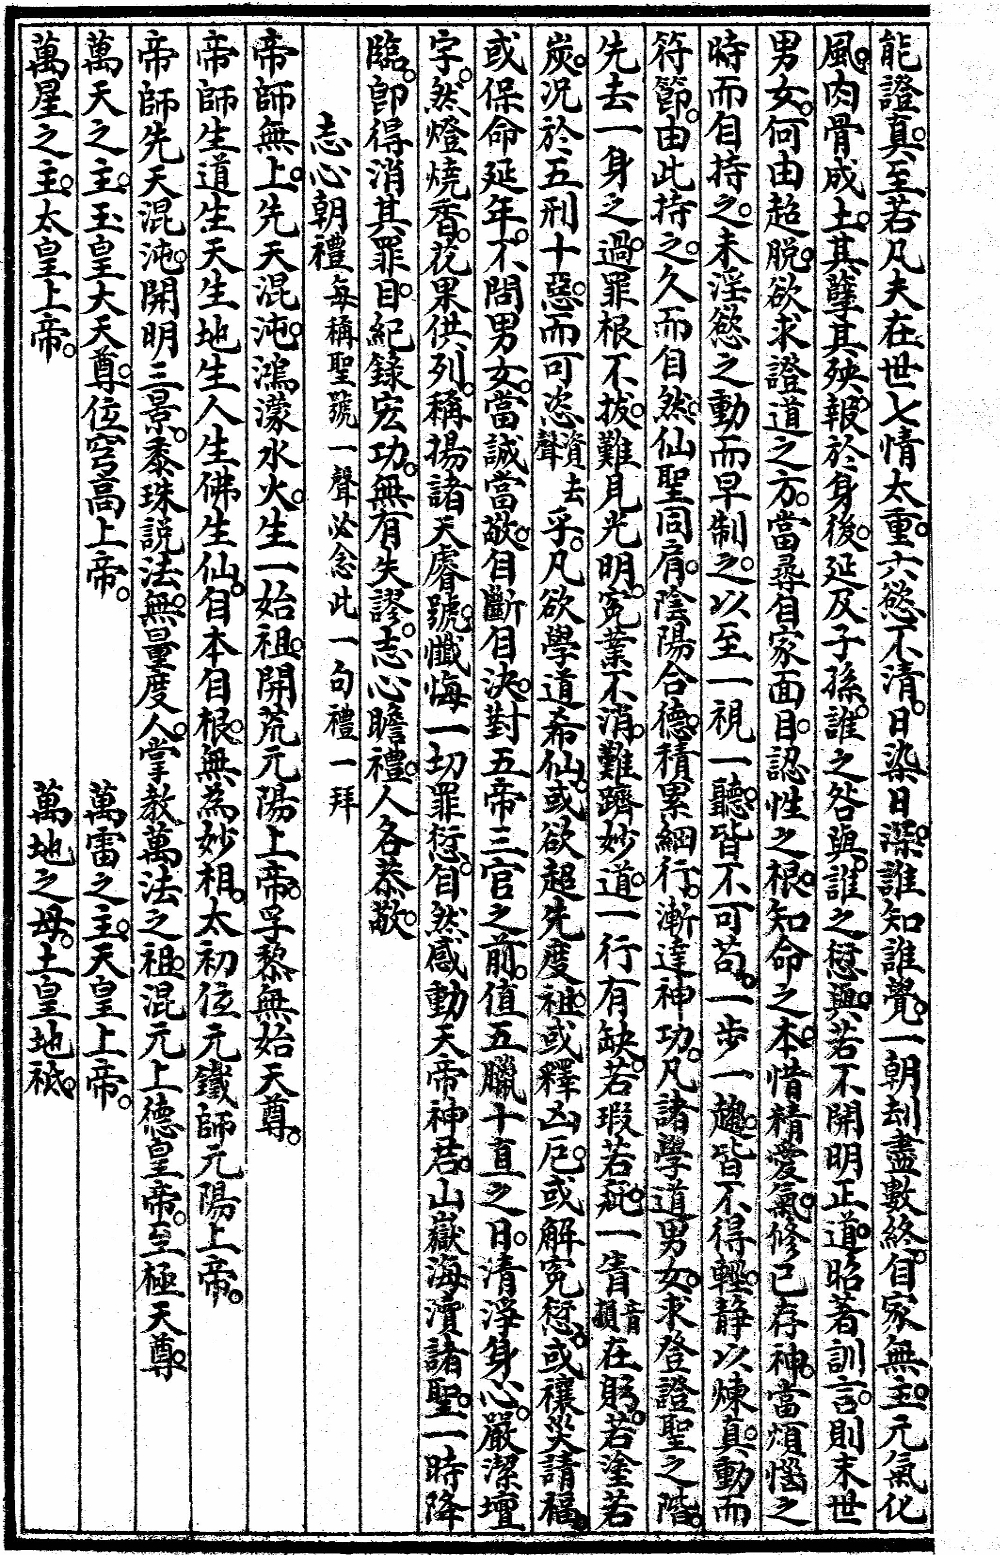 能證真。至若凡夫在世。七情太重。六慾不清。日染日深。誰知誰覺。一朝刦盡數終。自家無主。元氣化
風。肉骨成土。其孽其殃。報於身後。延及子孫。誰之咎與。誰之愆與。若不開明正道。昭著訓言。則末世
男女。何由超脱。欲求證道之方。當尋自家面目。認性之根。知命之本。惜精愛氣。修己存神。當煩惱之
時而自持之。未淫慾之動而早制之。以至一視一聽。皆不可苟。一步一趨。皆不得輕。静以煉真。動而
符節。由此持之。久而自然。仙聖同肩。陰陽合德。積累綱行。漸達神功。凡諸學道男女。求登證聖之階。
先去一身之過。罪根不拔。難見光明。寃業不消。難躋妙道。一行有缺。若瑕若疵。一眚音顡在躬。若塗若
炭。况於五刑十惡。而可恣資去聲乎。凡欲學道希仙。或欲超先度祖。或釋凶厄。或解寃愆。或禳災請福。
或保命延年。不問男女。當誠當敬。自斷自决。對五帝三官之前。值五臘十直之日。清淨身心。嚴潔壇
宇。然燈燒香。花果供列。稱揚諸天睿號。懺悔一切罪愆。自然感動天帝神君。山嶽海瀆諸聖。一時降
臨。卽得消其罪目。紀錄宏功。無有失謬。志心瞻禮。人各恭敬。
志心朝禮每稱聖號一聲必念此一句禮一拜
帝師無上。先天混沌。鴻濛水火。生一始祖。開荒元陽上帝。孚黎無始天尊。
帝師生道生天生地生人生佛生仙。自本自根。無為妙相。太初位元鐵師元陽上帝。
帝師先天混沌。開明三景。黍珠説法。無量度人。掌教萬法之祖。混元上德皇帝。至極天尊。
萬天之主。玉皇大天尊。位穹高上帝。　萬雷之主。天皇上帝。
萬星之主。太皇上帝。　萬地之母。土皇地祇。